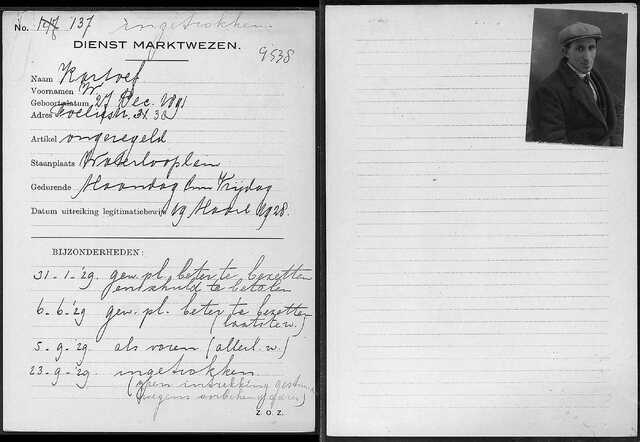 No. 137 Ingetrokken.
DIENST MARKTWEZEN.
9538
Naam
Voornamen W.
Geboortedatum 27 Dec. 1891
Adres
Artikel ongeregeld
Staanplaats Waterlooplein
Gedurende Maandag t/m Vrijdag
Datum uitreiking legitimatiebewijs 19 Maart 1928.
BIJZONDERHEDEN:
31-1-'29. gew. pl. beter te bezetten
en schuld te betalen
6-6-'29 gew. pl. beter te bezetten
(laatste w.)
5-9-'29 als voren (allerl. w.)
23-9-'29 ingetrokken.
(geen intrekking
wegens
Z. O. Z.